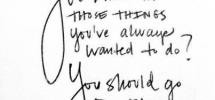 THOSE THINGS
you've always
wanted to do?
You should go